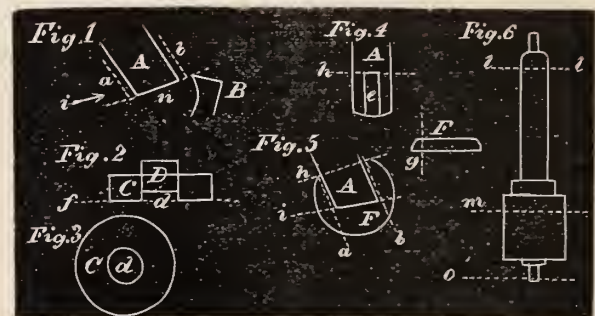 Fig. 1
A
a
b
i
n
B
Fig. 2
C
D
d
f
Fig. 3
C
d
Fig. 4
A
h
e
Fig. 5
h
A
i
F
a
b
F
g
Fig. 6
l
l
m
o